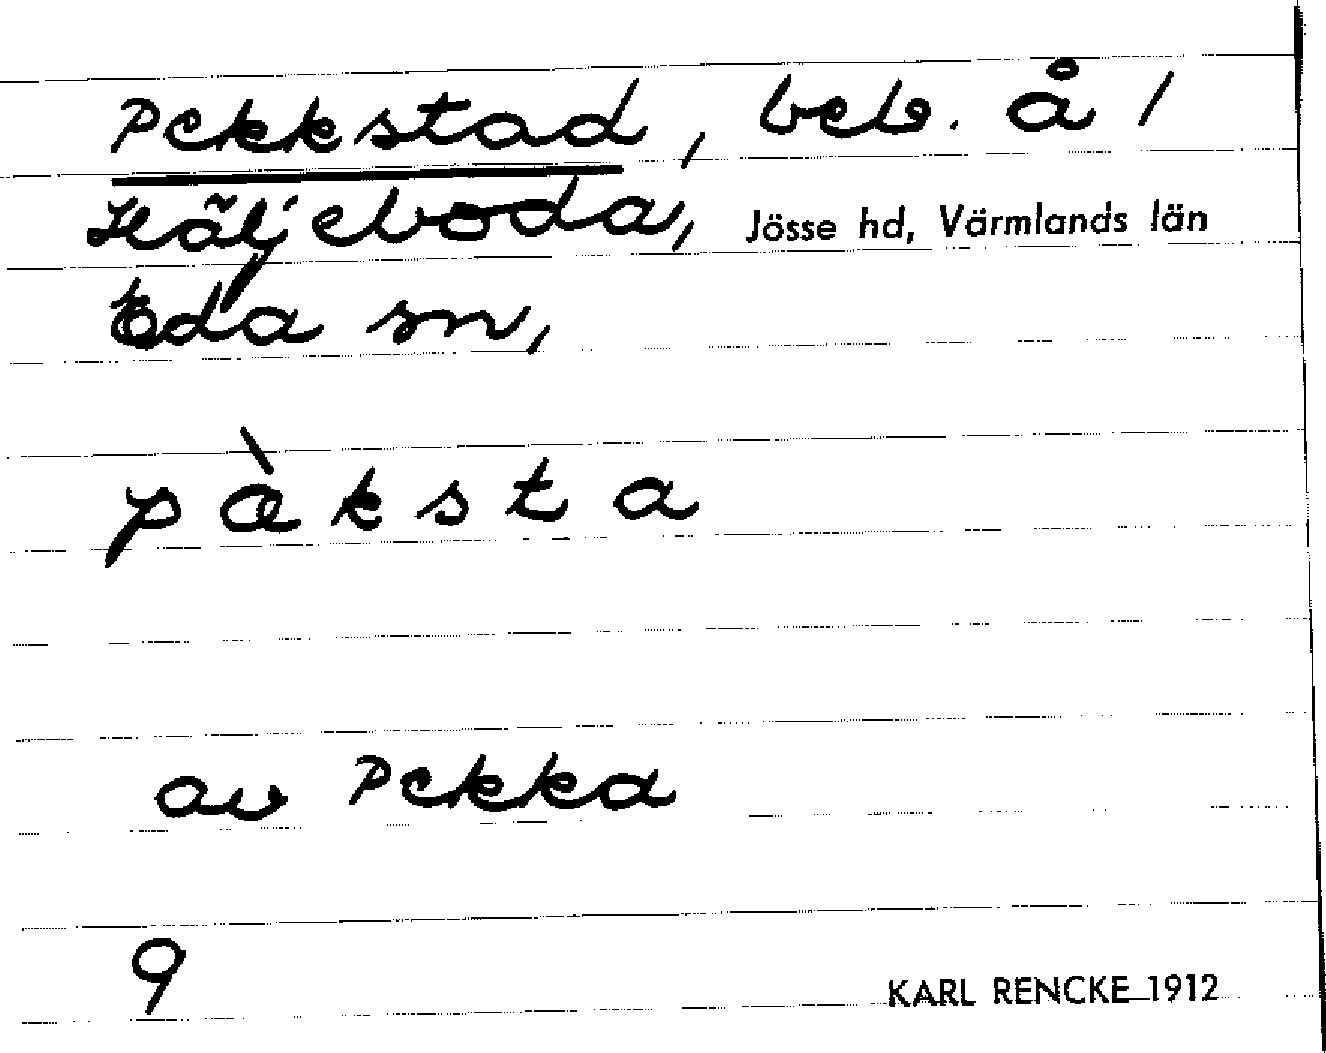 Pekkstad, beb. å /
Häljeboda, Jösse hd, Värmlands län
Eda sn,
pàksta
av Pekka
9
KARL RENCKE 1912